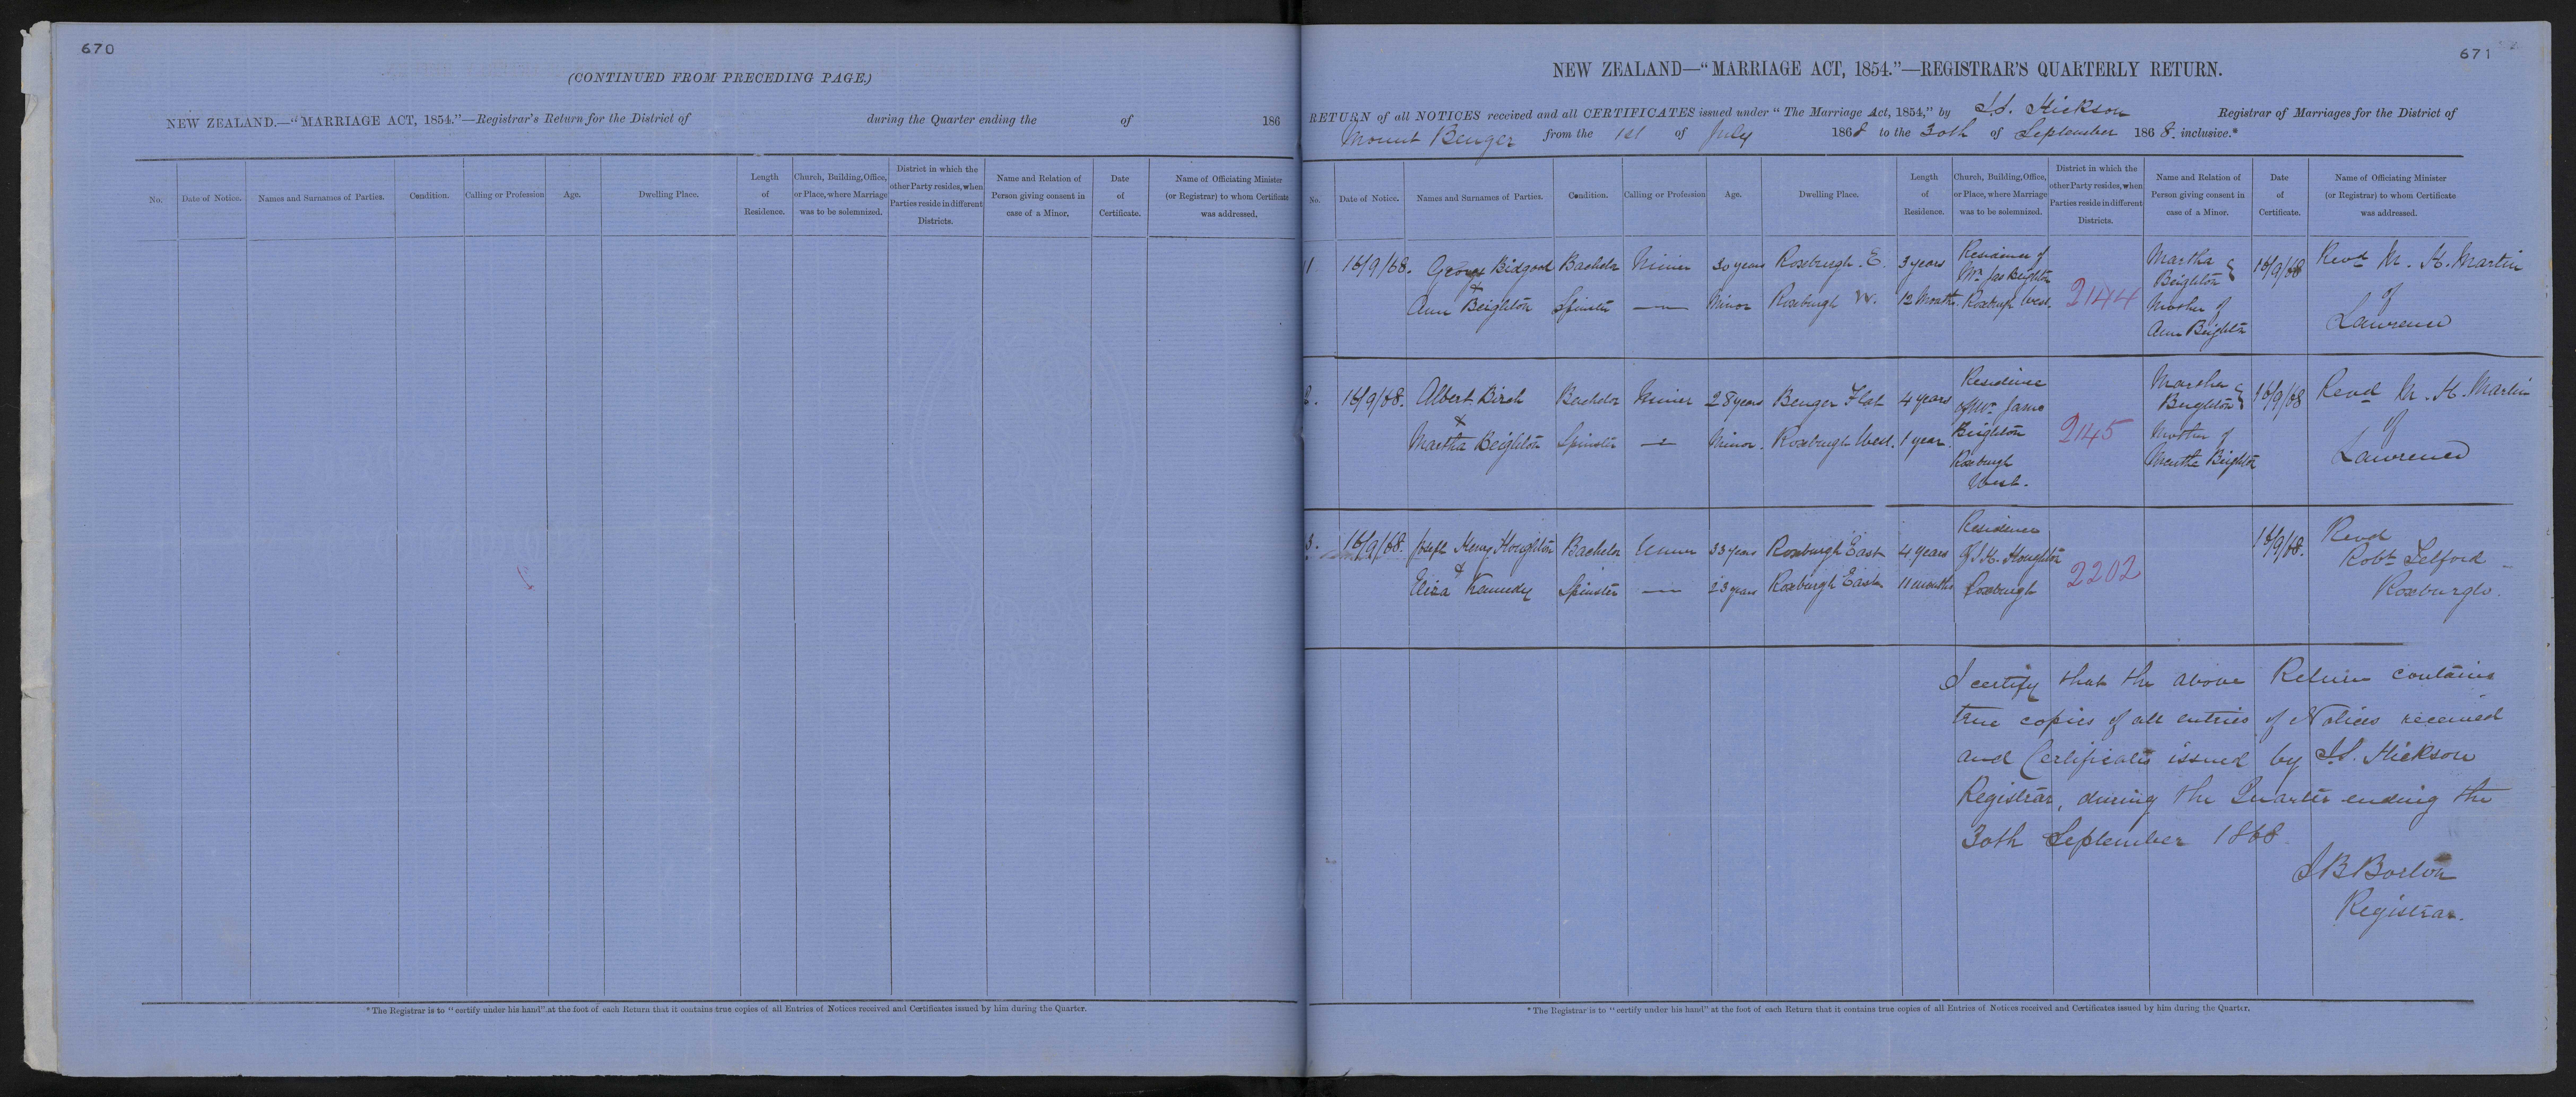 670
(CONTINUED FROM PRECEDING PAGE.)
NEW ZEALAND.—"MARRIAGE ACT, 1854."—Registrar's Return for the District of during the Quarter ending the of 186
No.
Date of Notice.
Names and Surnames of Parties.
Condition.
Calling or Profession
Age.
Dwelling Place.
Length
of
Residence.
Church, Building, Office,
or Place, where Marriage
was to be solemnized.
District in which the
other Party resides, when
Parties reside in different
Districts.
Name and Relation of
Person giving consent in
case of a Minor.
Date
of
Certificate.
Name of Officiating Minister
(or Registrar) to whom Certificate
was addressed.
* The Registrar is to "certify under his hand" at the foot of each Return that it contains true copies of all Entries of Notices received and Certificates issued by him during the Quarter.
671
NEW ZEALAND—"MARRIAGE ACT, 1854."—REGISTRAR'S QUARTERLY RETURN.
RETURN of all NOTICES received and all CERTIFICATES issued under "The Marriage Act, 1854," by Hickson Registrar of Marriages for the District of
Mount Benger from the 1st of July 1868 to the 30th of September 1868. inclusive.*
No.
Date of Notice.
Names and Surnames of Parties.
Condition.
Calling or Profession
Age.
Dwelling Place.
Length
of
Residence.
Church, Building, Office,
or Place, where Marriage
was to be solemnized.
District in which the
other Party resides, when
Parties reside in different
Districts.
Name and Relation of
Person giving consent in
case of a Minor.
Date
of
Certificate.
Name of Officiating Minister
(or Registrar) to whom Certificate
was addressed.
1
16/9/68.
George Bidgood
&
Ann Beighton
Bachelor
Spinster
Miner
—
30 years
Minor
Roxburgh. E.
Roxburgh W.
3 years
12 Months
Residence of
Mr. Jas Beighton
Roxburgh West.
2144
Martha
Beighton
Mother of
Ann Beighton
16/9/68
Revd M. H. Martin
of
Lawrence
2.
16/9/68.
Albert Birch
&
Martha Beighton
Bachelor
Spinster
Miner
—
28 years
Minor.
Benger Flat
Roxburgh West.
4 years
1 year.
Residence
of Mr. James
Beighton
Roxburgh
West.
2145
Martha
Beighton
Mother of
Martha Beighton
16/9/68
Revd M. H. Martin
of
Lawrence
3.
16/9/68.
Joseph Henry Houghton
&
Eliza Kennedy
Bachelor
Spinster
Miner
—
33 years
23 years
Roxburgh East
Roxburgh East
4 years
11 months
Residence
of J. H. Houghton
Roxburgh
2202
16/9/68.
Revd
Robt Telford
Roxburgh.
I certify that the above Return contains
true copies of all entries of Notices received
and Certificates issued by Hickson
Registrar, during the Quarter ending the
30th September 1868.
J B Borton
Registrar.
* The Registrar is to "certify under his hand" at the foot of each Return that it contains true copies of all Entries of Notices received and Certificates issued by him during the Quarter.